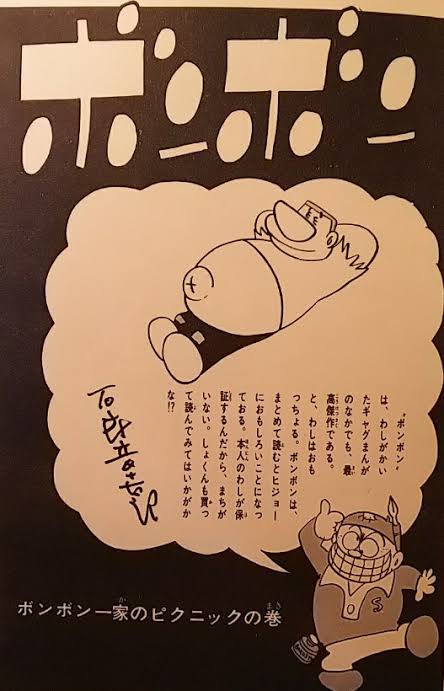 ボンボン
“ボンボン”
は、わしがかい
たギャグまんが
のなかでも、最
高傑作である。
と、わしはおも
っちょる。ボンボンは、
まとめて読むとヒジョー
におもしろいことになっ
ておる。本人のわしが保
証するんだから、まちが
いない。しょくんも買っ
て読んでみてはいかがか
な!?
石森章太郎
S
ボンボン一家のピクニックの巻